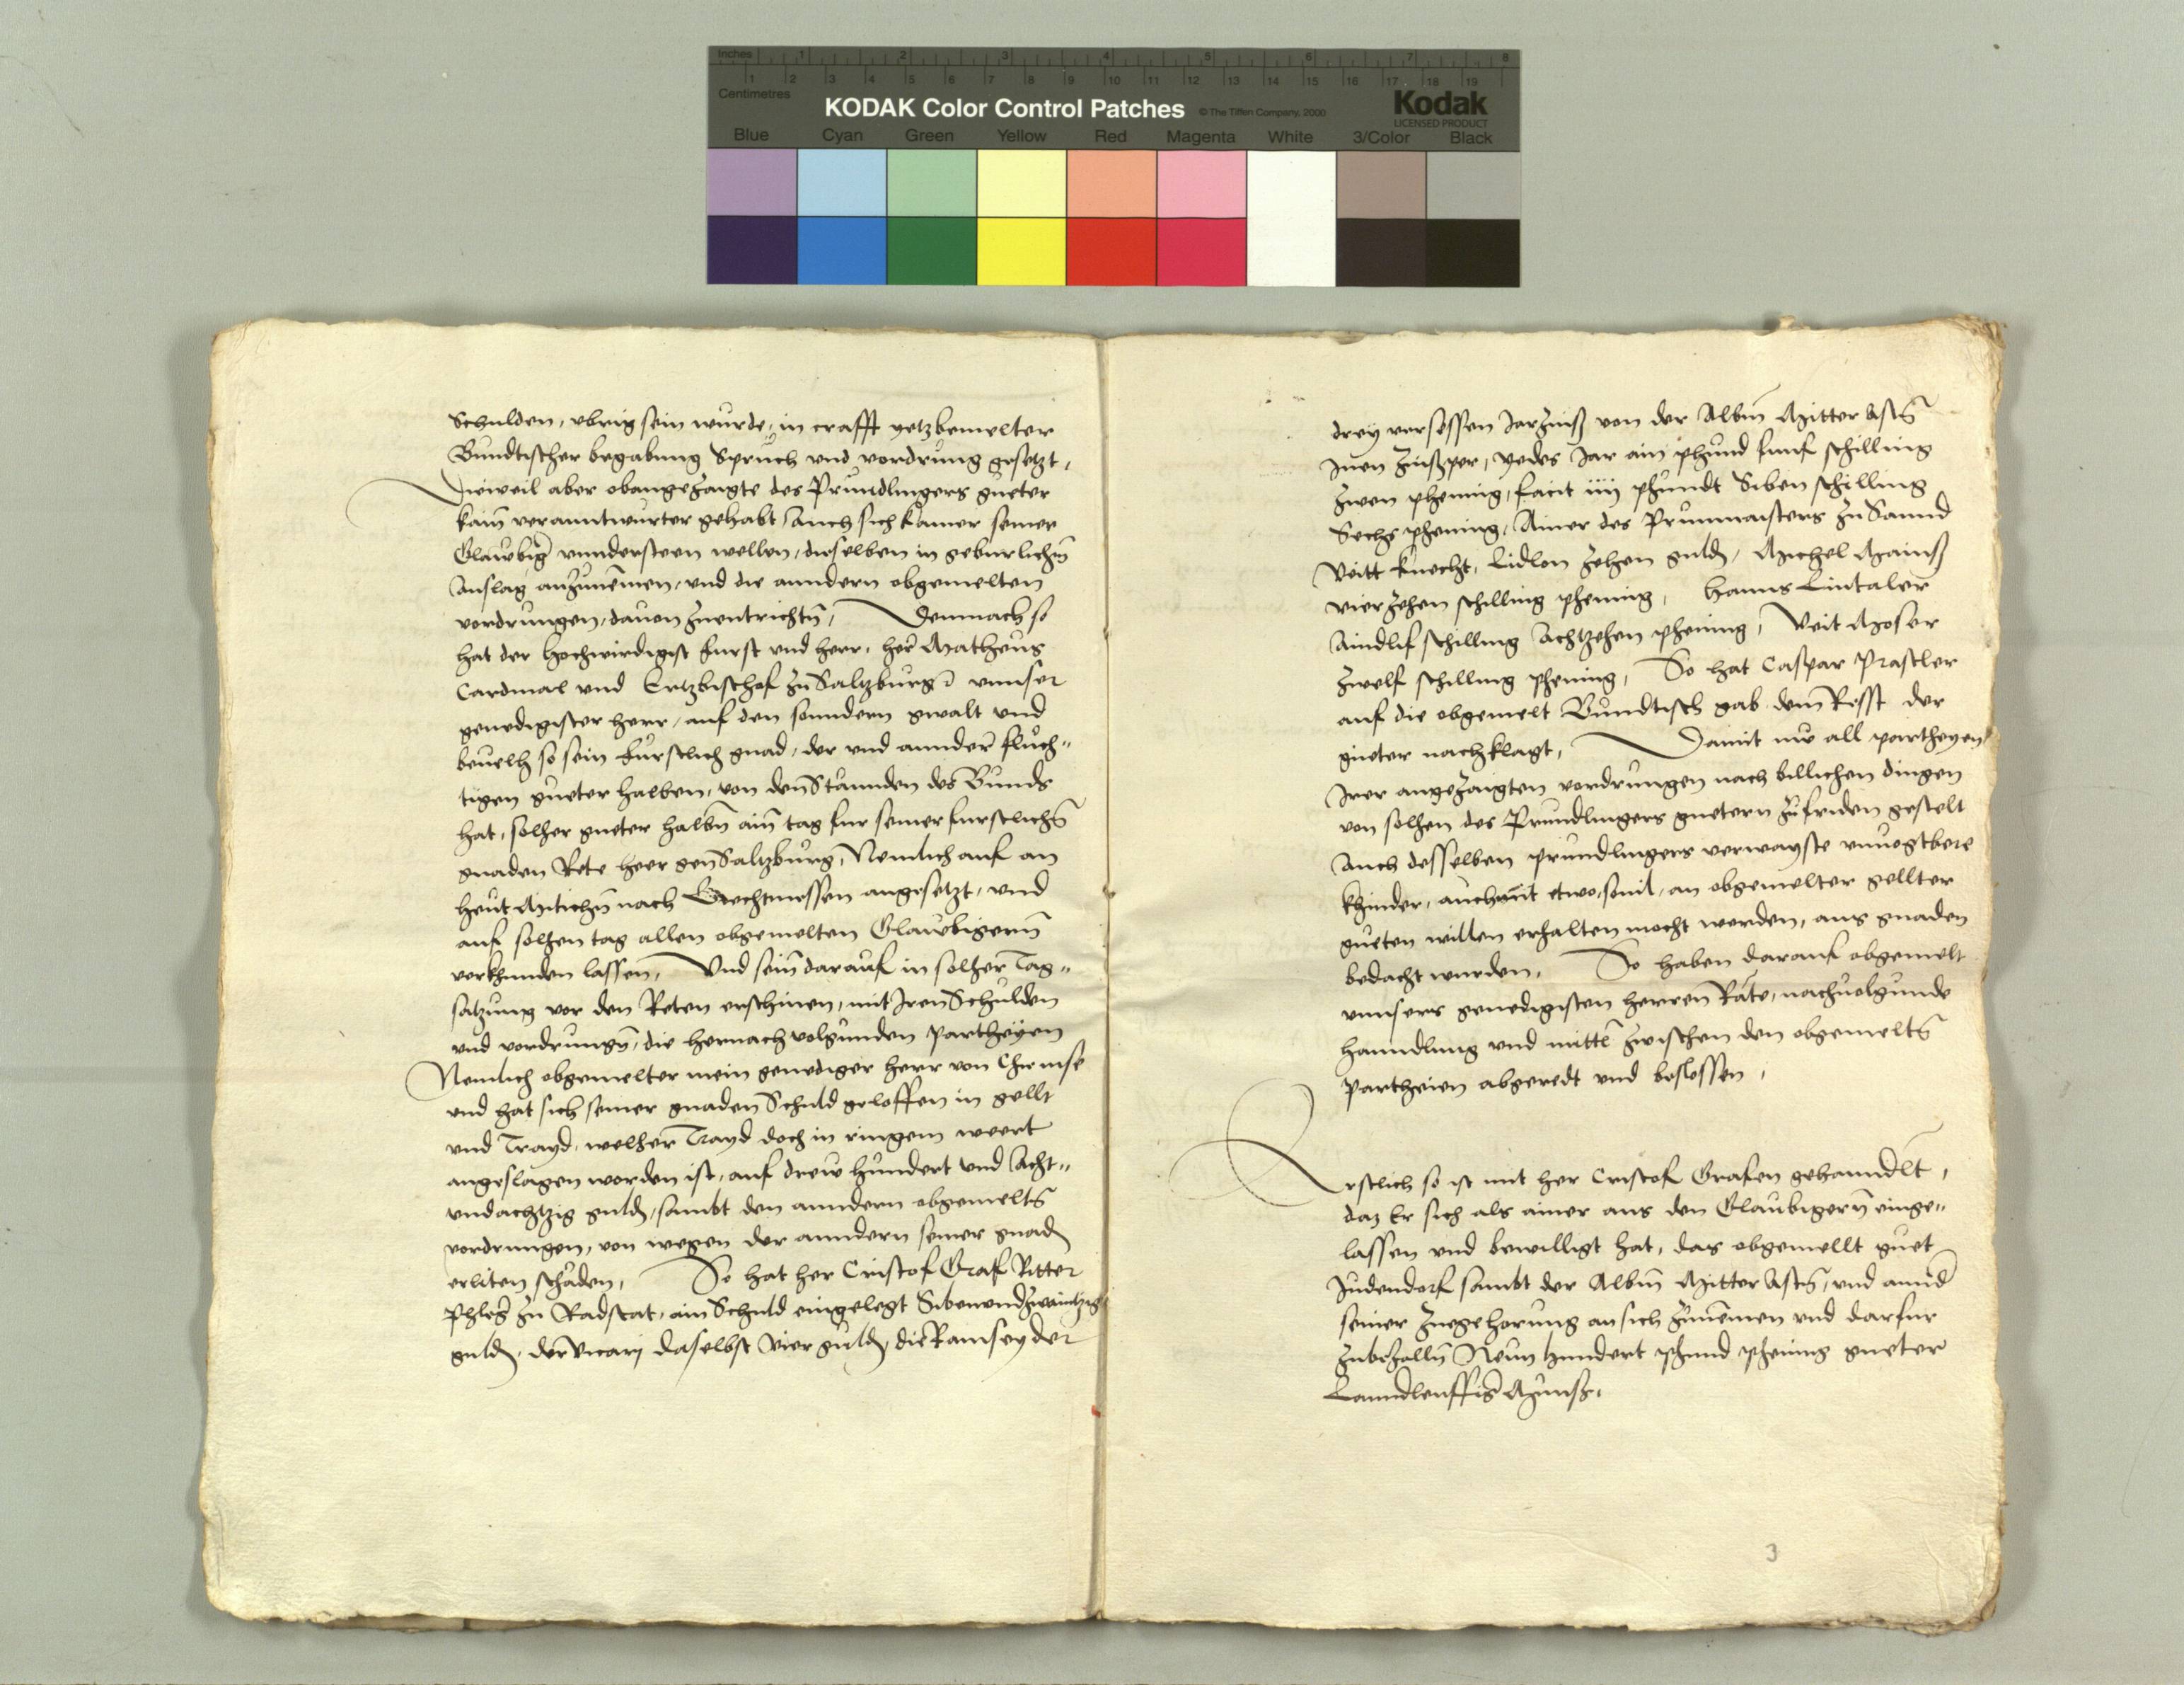 Inches 1 2 3 4 5 6 7 8
1 2 3 4 5 6 7 8 9 10 11 12 13 14 15 16 17 18 19
Centimetres
KODAK Color Control Patches © The Tiffen Company, 2000 Kodak
LICENSED PRODUCT
Blue Cyan Green Yellow Red Magenta White 3/Color Black
Schulden, vbrig sein wurde, in crafft yetzbemelter
Bundtischer begabung Spruch vnd vordrung gesetzt,
Dieweil aber obangezaigte des Prundlingers gueter
kain verantwurter gehabt Auch sich kainer seiner
Glawbig vnndersteen wellen, dieselben in geburlichn
Anslag anzunemen, vnd die anndern obgemelten
vordrungen, dauon zuentrichtn, Demnach so
hat der hochwirdigist furst vnd herr, her Matheus
Cardinal vnd Ertzbischof zu Saltzburg vnnser
genedigister herr, auf den sonndern gwalt vnd
beuelh so sein furstlich gnad, der vnd annder fluch-
tigen gueter halben, von den Stannden des Bunds
hat, solher gueter halbn ain tag fur seiner furstlichn
gnaden Rete heer gen Saltzburg, Nemlich auf an
heut Mitichn nach Liechtmessen angesetzt, vnd
auf solhen tag allen obgemelten Glawbigern
verkhunden lassen, Vnd sein darauf in solher Tag-
satzung vor den Reten erschinen, mit Iren Schulden
vnd vordrungn, die hernachuolgunden partheyen
Nemlich obgemelter mein genediger herr von Chiemse
vnd hat sich seiner gnaden Schuld geloffen in gellt
vnd Trayd, welher Trayd doch in ringem weert
angeslagen worden ist, auf drew hundert vnd Acht-
vndachtzig guld, sambt den anndern obgemeltn
vordrungen, von wegen der anndern seiner gnad
erliten schaden, So hat her Cristof Graf Ritter
Phleg zu Radstat, ain Schuld eingelegt Sibenundzwaintzig
guld, der Vicary daselbst vier guld, die Ramseyder
drey versessen Jarzinss von der Albm Mitter
Inen zinsper, yedes Jar ain phund funf schilling
zwen phening, facit iiij phundt Siben schilling
Sechs phening, Ainer des Prunmaisters zu Sannd
Veitt knecht, Lidlon zehen guld, Michel Mainss
vierzehen schilling phening, Hanns Lintaler
Aindlif schilling Achtzehen phening, Veit Moser
zwelf schilling phening, So hat Caspar Prastler
auf die obgemelt Bundtisch gab dem Resst der
gueter nachklagt, Damit nu all partheyen
Irer angezaigten vordrungen nach billichen dingen
von solhen des Prundlingers guetern zufriden gestelt
Auch desselben prundlingers verwayste vnuogtbere
khinder, auch mit etwo souil, an obgemelter gellter
gueten willen erhalten mocht werden, aus gnaden
bedacht wurden, So haben darauf obgemelt
vnnsers genedigisten herren Räte, nachuolgunde
hanndlung vnd mittl zwischen den obgemeltn
Partheien abgeredt vnd beslossen,
Erstlich so ist mit her Cristof Grafen gehanndlt,
daz Er sich als ainer aus den Glaubigern einge-
lassen vnd bewilligt hat, das obgemellt guet
Judendorf sambt der Albm Mitter vnd annd
seiner zuegehorung an sich zunemen vnd darfur
zubezalln Neun hundert phund phening gueter
Lanndleuffig Munss,
3